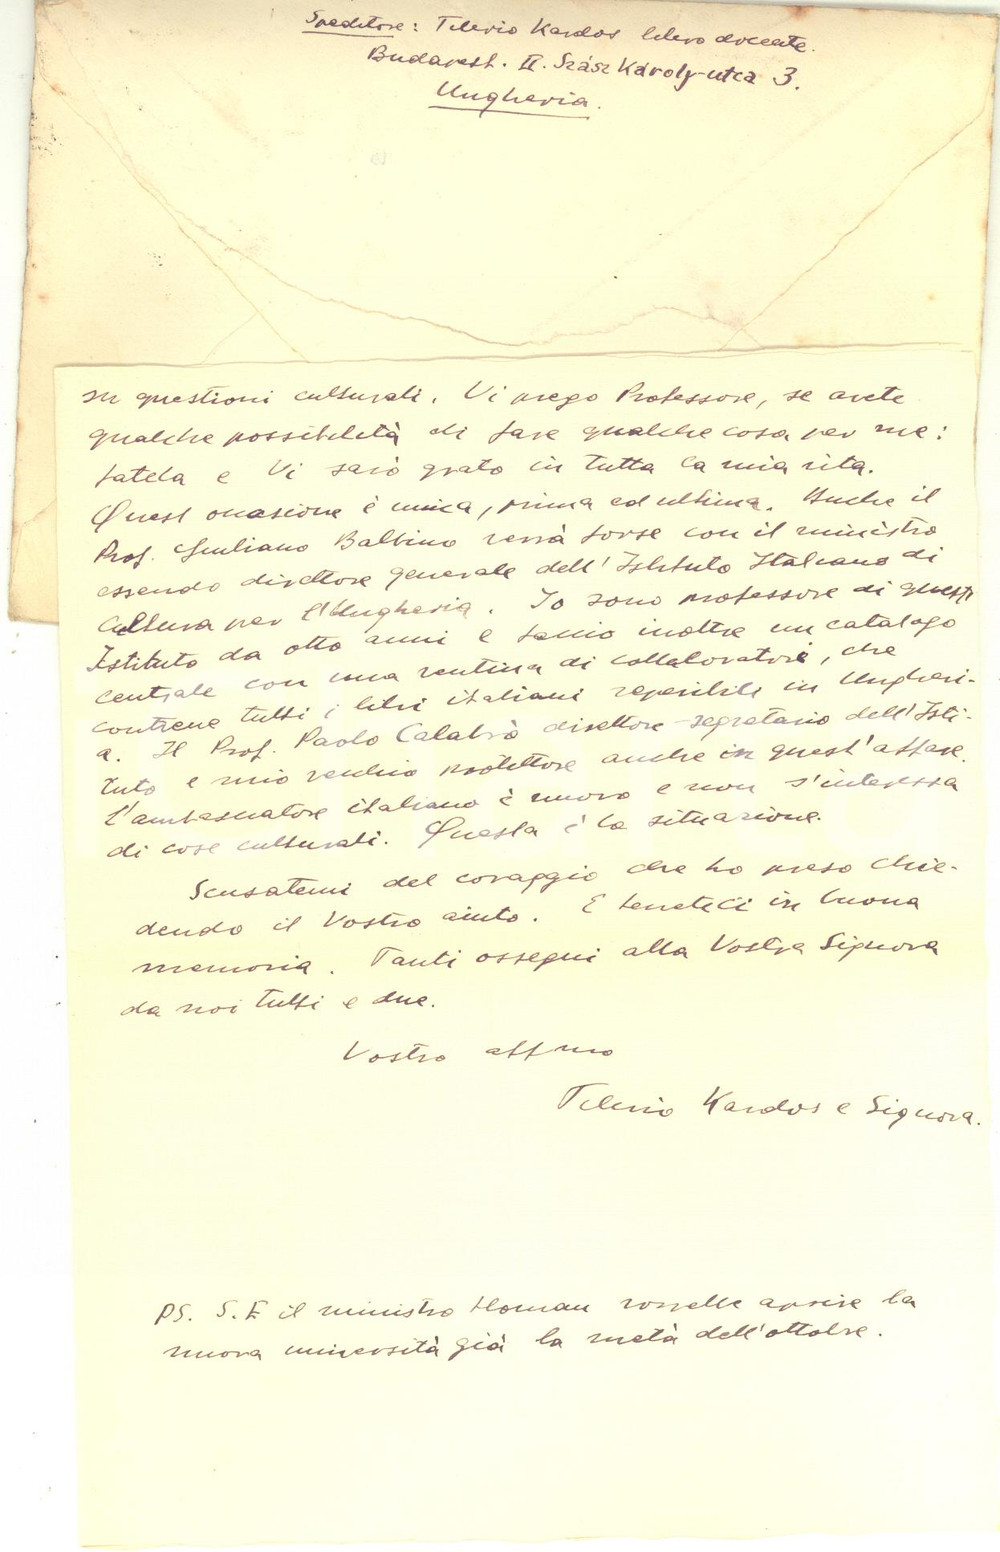 Speditore: Tiberio Kardos libero docente.
Budapest. II. Szász Károly-utca 3.
Ungheria.
su questioni culturali. Vi prego Professore, se avete
qualche possibilità di fare qualche cosa per me:
fatela e Vi sarò grato in tutta la mia vita.
Quest'occasione è unica, prima ed ultima. Anche il
Prof. Giuliano Balbino verrà forse con il ministro
essendo direttore generale dell'Istituto Italiano di
Cultura per l'Ungheria. Io sono professore di questo
Istituto da otto anni e tenio inoltre un catalogo
centrale con una ventina di collaboratori, che
contiene tutti i libri italiani reperibili in Ungheri-
a. Il Prof. Paolo Calabrò direttore-segretario dell'Isti-
tuto e mio vecchio protettore anche in quest'affare.
L'ambasciatore italiano è nuovo e non s'interessa
di cose culturali. Questa è la situazione.
Scusatemi del coraggio che ho preso chie-
dendo il Vostro aiuto. E teneteci in buona
memoria. Tanti ossequi alla Vostra Signora
da noi tutti e due.
Vostro affmo
Tiberio Kardos e Signora.
PS. S.E il ministro Homan vorrebbe aprire la
nuova università già la metà dell'ottobre.